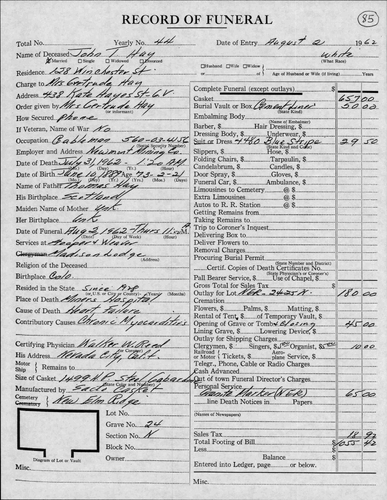 RECORD OF FUNERAL
85
Total No. Yearly No. 44 Date of Entry August 2, 1962
Name of Deceased John T. Hay white
Married Single Widowed Divorced Husband Wife (What Race)
Residence 128 Winchester St.
of Age of Husband or Wife (if living) Years
Charge to Mrs Gertrude Hay
Address 438 Kate Hayes St. G.V.
Order given by Mrs Gertrude Hay
How Secured Phone
If Veteran, Name of War No
Occupation 560-03-4156
Employer and Address Newmont Mining Co.
Date of Death July 31, 1962 1:20 AM
Date of Birth June 10, 1889 73-2-21
Name of Father Thomas Hay
His Birthplace Scotland
Maiden Name of Mother Unk
Her Birthplace Unk
Date of Funeral Aug 2, 1962 Thurs 11
Services at Hooper & Weaver
Clergyman Madison Lodge
Religion of the Deceased
Birthplace Colo.
Resided in the State Since 1928
Place of Death Miners Hospital
Cause of Death Heart Failure
Contributory Causes Chronic Myocarditis
Certifying Physician Walter W. Reed
His Address Nevada City, Calif.
Motor Ship Remains to
Size of Casket
Manufactured by
Cemetery Crematory New Elm Ridge
Lot No.
Grave No. 24
Section No. N
Block No.
Owner
Diagram of Lot or Vault
Misc.
Complete Funeral (except outlays) $
Casket 657 00
Burial Vault or Box Cement Liner 50 00
(State Kind)
Embalming Body
(Name of Embalmer)
Barber, $ Hair Dressing, $
Dressing Body, $ Underwear, $
Suit or Dress 4480 Blue Stripe 29 50
(State Kind and Color)
Slippers, $ Hose, $
Folding Chairs, $ Tarpaulin, $
Candelabrum, $ Candles, $
Door Spray, $ Gloves, $
Funeral Car, $ Ambulance, $
Limousines to Cemetery @ $
Extra Limousines @ $
Autos to R. R. Station @ $
Getting Remains from
Taking Remains to
Trip to Coroner's Inquest
Delivering Box to
Deliver Flowers to
Removal Charges
Procuring Burial Permit
(State Number and District)
Certif. Copies of Death Certificates No.
(State Physician's or Coroner's)
Pall Bearer Service, $ Use of Chapel, $
Outlay for Lot N.E.R. - 24 Sec N. 180 00
Cremation
Flowers, $ Palms, $ Matting, $
Rental of Tent, $ of Temporary Vault, $
Opening of Grave or Tomb & Closing 45 00
Lining Grave, $ Lowering Device, $
Outlay for Shipping Charges
Clergymen, $ Singers, $ Organist, $ 10 00
Railroad or Motor Tickets, $ Aeroplane Service, $
Telegr., Phone, Cable or Radio Charges
Cash Advanced
Out of town Funeral Director's Charges
Personal Service
Granite Marker (N.E.R) 65 00
line Death Notices in Papers
(Names of Newspapers)
Sales Tax 18 92
Total Footing of Bill $ 1055 42
Less
Balance $
Entered into Ledger, page or below.
Misc.